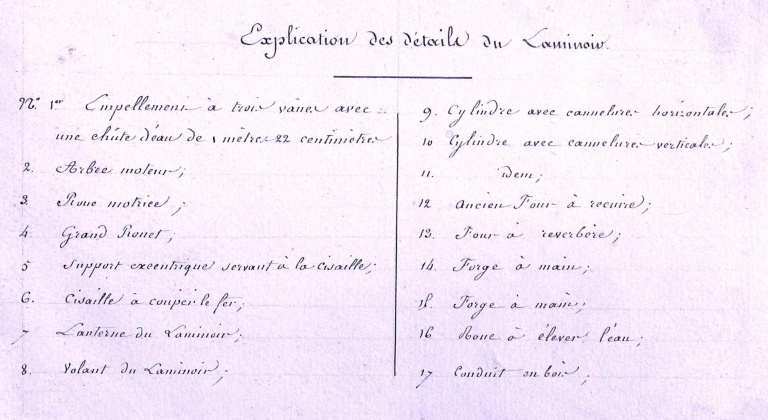 Explication des détails du Laminoir.
Nº 1er Empellement à trois vânes avec
une chûte d'éau de 1 mètre 22 centimètres
2. Arbre moteur;
3. Roue motrice;
4. Grand Rouet;
5 Support excentrique servant à la cisaille;
6. Cisaille à couper le fer;
7 Lanterne du Laminoir;
8. Volant du Laminoir;
9. Cylindre avec cannelures horizontales;
10 Cylindre avec cannelures verticales;
11. idem;
12 ancien Four à recuire;
13. Four à reverbère;
14. Forge à main;
15. Forge à main;
16 Roue à élever l'éau;
17 Conduit en bois;